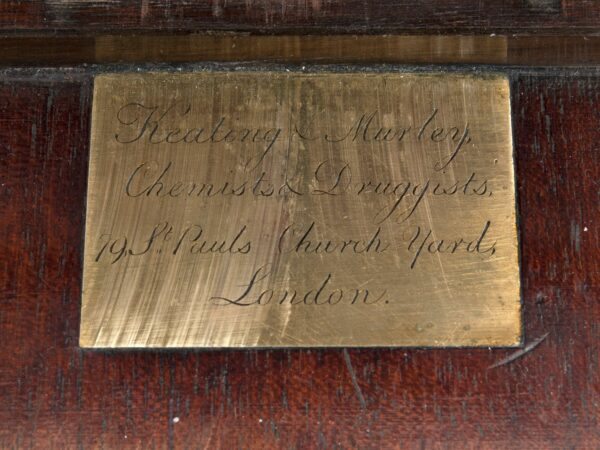 Keating & Murley,
Chemists & Druggists,
79, St. Pauls Church Yard,
London.